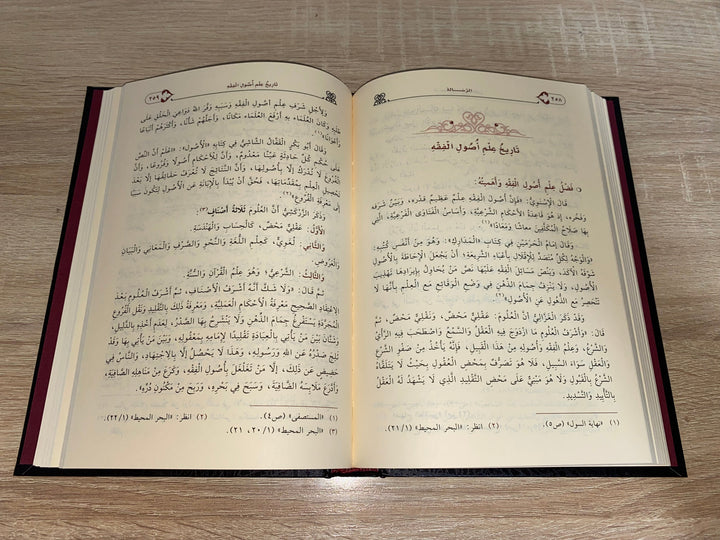 ٢٥٨
الرسالة
تَارِيخُ عِلْمِ أُصُولِ الْفِقْهِ
فَضْلُ عِلْمِ أُصُولِ الْفِقْهِ وَأَهَمِّيَّتُهُ:
قَالَ الإِسْنَوِيُّ: «فَإِنَّ أُصُولَ الْفِقْهِ عِلْمٌ عَظِيمٌ قَدْرُهُ، وَبَيِّنٌ شَرَفُهُ
وَفَخْرُهُ، إِذْ هُوَ قَاعِدَةُ الأَحْكَامِ الشَّرْعِيَّةِ، وَأَسَاسُ الْفَتَاوَى الْفَرْعِيَّةِ، الَّتِي
بِهَا صَلَاحُ الْمُكَلَّفِينَ مَعَاشًا وَمَعَادًا»(١).
وَقَالَ إِمَامُ الْحَرَمَيْنِ فِي كِتَابِ «الْمَدَارِكِ» وَهُوَ مِنْ أَنْفَسِ كُتُبِهِ:
«وَالْوَجْهُ لِكُلِّ مُتَصَدٍّ لِلإِقْلَالِ بِأَعْبَاءِ الشَّرِيعَةِ؛ أَنْ يَجْعَلَ الإِحَاطَةَ بِالأُصُولِ
شَوْقَهُ الآكَدَ، وَيَنُصَّ مَسَائِلَ الْفِقْهِ عَلَيْهَا نَصَّ مَنْ يُحَاوِلُ بِإِيرَادِهَا تَهْذِيبَ
الأُصُولِ، وَلَا يَنْزِفُ جِمَامَ الذِّهْنِ فِي وَضْعِ الْوَقَائِعِ مَعَ الْعِلْمِ بِأَنَّهَا لَا
تَنْحَصِرُ مَعَ الذُّهُولِ عَنِ الأُصُولِ»(٢).
وَقَدْ ذَكَرَ الْغَزَالِيُّ أَنَّ الْعُلُومَ: عَقْلِيٌّ مَحْضٌ، وَنَقْلِيٌّ مَحْضٌ، ثُمَّ
قَالَ: «وَأَشْرَفُ الْعُلُومِ مَا ازْدَوَجَ فِيهِ الْعَقْلُ وَالسَّمْعُ وَاصْطَحَبَ فِيهِ الرَّأْيُ
وَالشَّرْعُ، وَعِلْمُ الْفِقْهِ وَأُصُولِهِ مِنْ هَذَا الْقَبِيلِ، فَإِنَّهُ يَأْخُذُ مِنْ صَفْوِ الشَّرْعِ
وَالْعَقْلِ سَوَاءَ السَّبِيلِ، فَلَا هُوَ تَصَرُّفٌ بِمَحْضِ الْعُقُولِ بِحَيْثُ لَا يَتَلَقَّاهُ
الشَّرْعُ بِالْقَبُولِ وَلَا هُوَ مَبْنِيٌّ عَلَى مَحْضِ التَّقْلِيدِ الَّذِي لَا يَشْهَدُ لَهُ الْعَقْلُ
بِالتَّأْيِيدِ وَالتَّسْدِيدِ.
(١) «نهاية السول» (ص٥). (٢) انظر: «البحر المحيط» (٢١/١).
تاريخ علم أصول الفقه
٢٥٩
وَلِأَجْلِ شَرَفِ عِلْمِ أُصُولِ الْفِقْهِ وَسَبَبِهِ وَفَّرَ اللهُ دَوَاعِيَ الْخَلْقِ عَلَى
طَلَبِهِ وَكَانَ الْعُلَمَاءُ بِهِ أَرْفَعَ الْعُلَمَاءِ مَكَانًا، وَأَجَلَّهُمْ شَأْنًا، وَأَكْثَرَهُمْ أَتْبَاعًا
وَأَعْوَانًا»(١).
وَقَالَ أَبُو بَكْرٍ الْقَفَّالُ الشَّاشِيُّ فِي كِتَابِهِ «الأُصُولِ»: «اعْلَمْ أَنَّ النَّصَّ
عَلَى حُكْمِ كُلِّ حَادِثَةٍ عَيْنًا مَعْدُومٌ، وَأَنَّ لِلأَحْكَامِ أُصُولًا وَفُرُوعًا، وَأَنَّ
الْفُرُوعَ لَا تُدْرَكُ إِلَّا بِأُصُولِهَا، وَأَنَّ النَّتَائِجَ لَا تُعْرَفُ حَقَائِقُهَا إِلَّا بَعْدَ
تَحْصِيلِ الْعِلْمِ بِمُقَدِّمَاتِهَا، فَحَقٌّ أَنْ يُبْدَأَ بِالإِبَانَةِ عَنِ الأُصُولِ لِتَكُونَ سَبَبًا
إِلَى مَعْرِفَةِ الْفُرُوعِ»(٢).
وَذَكَرَ الزَّرْكَشِيُّ أَنَّ الْعُلُومَ ثَلَاثَةُ أَصْنَافٍ(٣):
الأَوَّلُ: عَقْلِيٌّ مَحْضٌ، كَالْحِسَابِ، وَالْهَنْدَسَةِ.
وَالثَّانِي: لُغَوِيٌّ، كَعِلْمِ اللُّغَةِ وَالنَّحْوِ وَالصَّرْفِ وَالْمَعَانِي وَالْبَيَانِ
وَالْعَرُوضِ.
وَالثَّالِثُ: الشَّرْعِيُّ؛ وَهُوَ عِلْمُ الْقُرْآنِ وَالسُّنَّةِ
ثُمَّ قَالَ: «وَلَا شَكَّ أَنَّهُ أَشْرَفُ الأَصْنَافِ، ثُمَّ أَشْرَفُ الْعُلُومِ بَعْدَ
الِاعْتِقَادِ الصَّحِيحِ مَعْرِفَةُ الأَحْكَامِ الْعَمَلِيَّةِ، وَمَعْرِفَةُ ذَلِكَ بِالتَّقْلِيدِ وَنَقْلِ الْفُرُوعِ
الْمُجَرَّدَةِ يَسْتَفْرِغُ جِمَامَ الذِّهْنِ وَلَا يَنْشَرِحُ بِهَا الصَّدْرُ، لِعَدَمِ أَخْذِهِ بِالدَّلِيلِ،
وَشَتَّانَ بَيْنَ مَنْ يَأْتِي بِالْعِبَادَةِ تَقْلِيدًا لِإِمَامِهِ بِمَعْقُولِهِ، وَبَيْنَ مَنْ يَأْتِي بِهَا وَقَدْ
ثَلَجَ صَدْرُهُ عَنِ اللهِ وَرَسُولِهِ، وَهَذَا لَا يَحْصُلُ إِلَّا بِالِاجْتِهَادِ، وَالنَّاسُ فِي
حَضِيضٍ عَنْ ذَلِكَ، إِلَّا مَنْ تَغَلْغَلَ بِأُصُولِ الْفِقْهِ، وَكَرَعَ مِنْ مَنَاهِلِهِ الصَّافِيَةِ،
وَادَّرَعَ مَلَابِسَهُ الضَّافِيَةَ، وَسَبَحَ فِي بَحْرِهِ، وَرَبِحَ مِنْ مَكْنُونِ دُرِّهِ».
(١) «المستصفى» (ص٤). (٢) انظر: «البحر المحيط» (٢٢/١).
(٣) «البحر المحيط» (٢٠/١، ٢١).